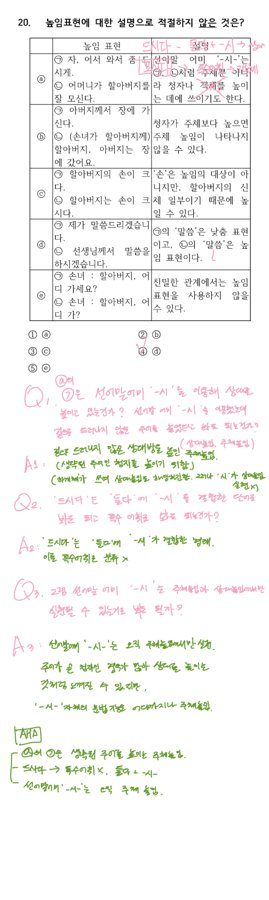 20. 높임표현에 대한 설명으로 적절하지 않은 것은?
높임 표현
설명
ⓐ
㉠ 자, 어서 와서 좀
시게.
㉡ 어머니가 할아버지를
잘 모신다.
선어말 어미 '-시-'는
처럼 주체뿐 아니
라 청자나 객체를 높이
는 데에 쓰이기도 한다.
ⓑ
㉠ 아버지께서 장에 가
신다.
㉡ (손녀가 할아버지께)
할아버지, 아버지는 장
에 갔어요.
청자가 주체보다 높으면
주체 높임이 나타나지
않을 수 있다.
ⓒ
㉠ 할아버지의 손이 크
다.
㉡ 할아버지는 손이 크
시다.
'손'은 높임의 대상이 아
니지만, 할아버지의 신
체 일부이기 때문에 높
일 수 있다.
ⓓ
㉠ 제가 말씀드리겠습니
다.
㉡ 선생님께서 말씀을
하시겠습니다.
㉠의 '말씀'은 낮춤 표현
이고, ㉡의 '말씀'은 높
임 표현이다.
ⓔ
㉠ 손녀 : 할아버지, 어
디 가세요?
㉡ 손녀 : 할아버지, 어
디 가?
친밀한 관계에서는 높임
표현을 사용하지 않을
수 있다.
① ⓐ ② ⓑ
③ ⓒ ④ ⓓ
⑤ ⓔ
Q1
㉠은 선어말어미 '-시-'를 이용해 상대를
높이고 있는건가? 선어말 어미 '-시-'를 이용했는데
A1:
(생략된 주어인 청자를 높이기 위함)
Q2. '드시다'는 '들다'에 '-시-'를 결합한 단어로
A2: '드시다'는 '들다'에 '-시-'가 결합한 형태.
이로 특수어휘로 분류 X
Q3. 그럼 선어말 어미 '-시-'는 주체높임과 상대높임에서만
실현될 수 있는거로 봐도 될까?
A3: 선어말어미 '-시-'는 오직 주체높임에서만 실현.
주어가 곧 청자인 경우가 많아 상대를 높이는
것처럼 느껴질 수 있지만,
'-시-' 자체의 문법기능은 어디까지나 주체높임.
AHA
ⓐ의 ㉠은 생략된 주어를 높이는 주체높임.
드시다 → 특수어휘 X, 들다 + -시-
선어말어미 '-시-'는 오직 주체 높임.